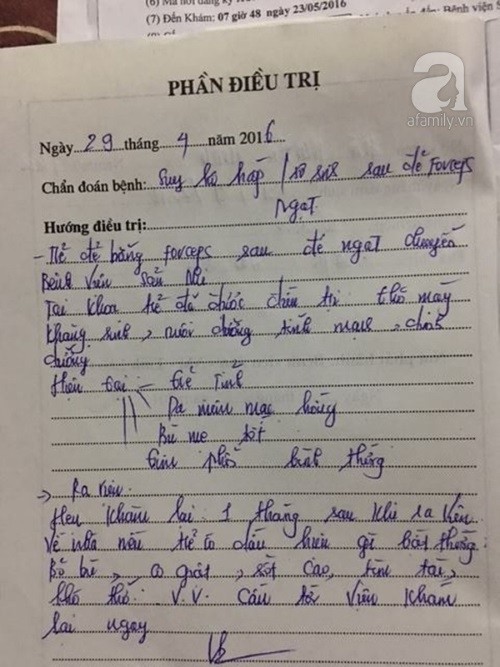 (7) Đến Khám: 07 giờ 48 ngày 23/05/2016
afamily.vn
PHẦN ĐIỀU TRỊ
Ngày 29 tháng 4 năm 2016
Chẩn đoán bệnh: Suy hô hấp / sơ sinh sau đẻ Forceps
Ngạt
Hướng điều trị:
- Trẻ đẻ bằng forceps sau đẻ ngạt chuyển
Bệnh viện sản Nhi
Tại khoa trẻ đã được điều trị thở máy
kháng sinh, nuôi dưỡng tĩnh mạch, chăm
dưỡng
Hiện tại - Trẻ tỉnh
Da niêm mạc hồng
Bú mẹ tốt
tim phổi bình thường
→ Ra viện
Hẹn khám lại 1 tháng sau khi ra viện
Về nhà nếu trẻ có dấu hiệu gì bất thường
Bỏ bú, co giật, sốt cao, tím tái,
khó thở. v.v. cần tới viện khám
lại ngay